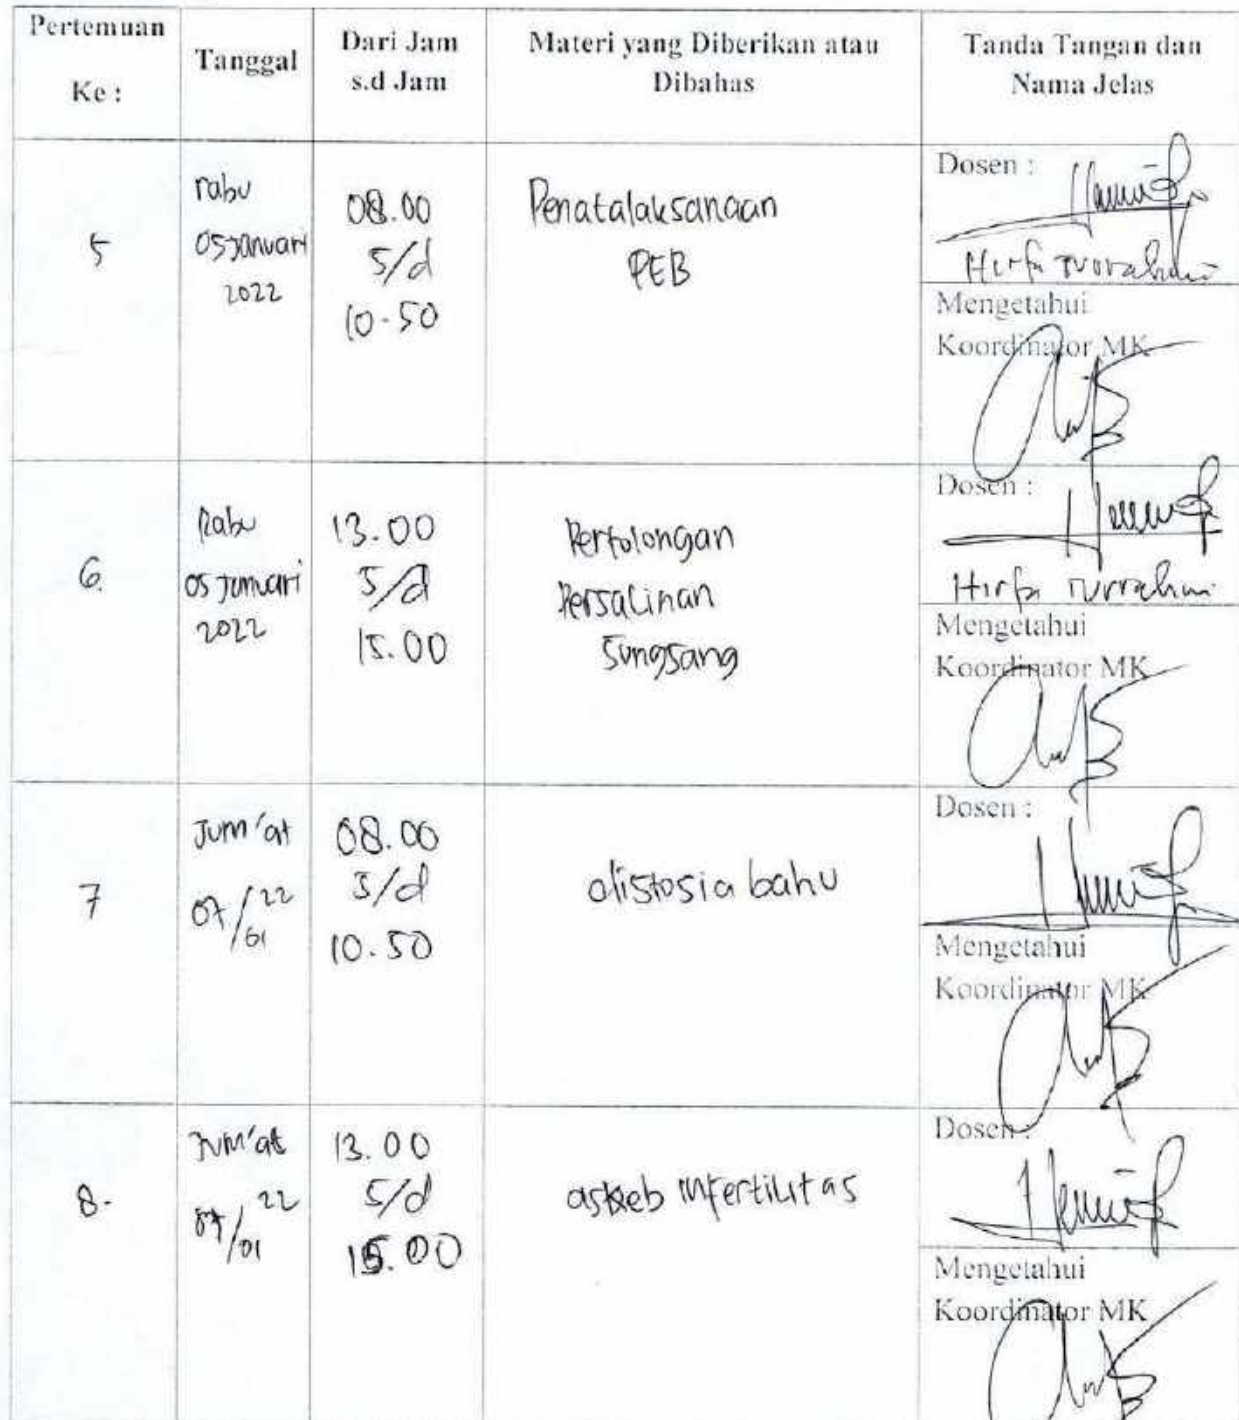 Pertemuan
Ke :
Tanggal
Dari Jam
s.d Jam
Materi yang Diberikan atau
Dibahas
Tanda Tangan dan
Nama Jelas
5
rabu
05 Januari
2022
08.00
s/d
10.50
Penatalaksanaan
PEB
Dosen :
Hirfa
Mengetahui
Koordinator MK
6.
Rabu
05 Januari
2022
13.00
s/d
15.00
Pertolongan
Persalinan
Sungsang
Dosen :
Hirfa
Mengetahui
Koordinator MK
7
Jum'at
07/01 22
08.00
s/d
10.50
distosia bahu
Dosen :
Mengetahui
Koordinator MK
8.
Jum'at
07/01 22
13.00
s/d
15.00
askeb infertilitas
Dosen :
Mengetahui
Koordinator MK